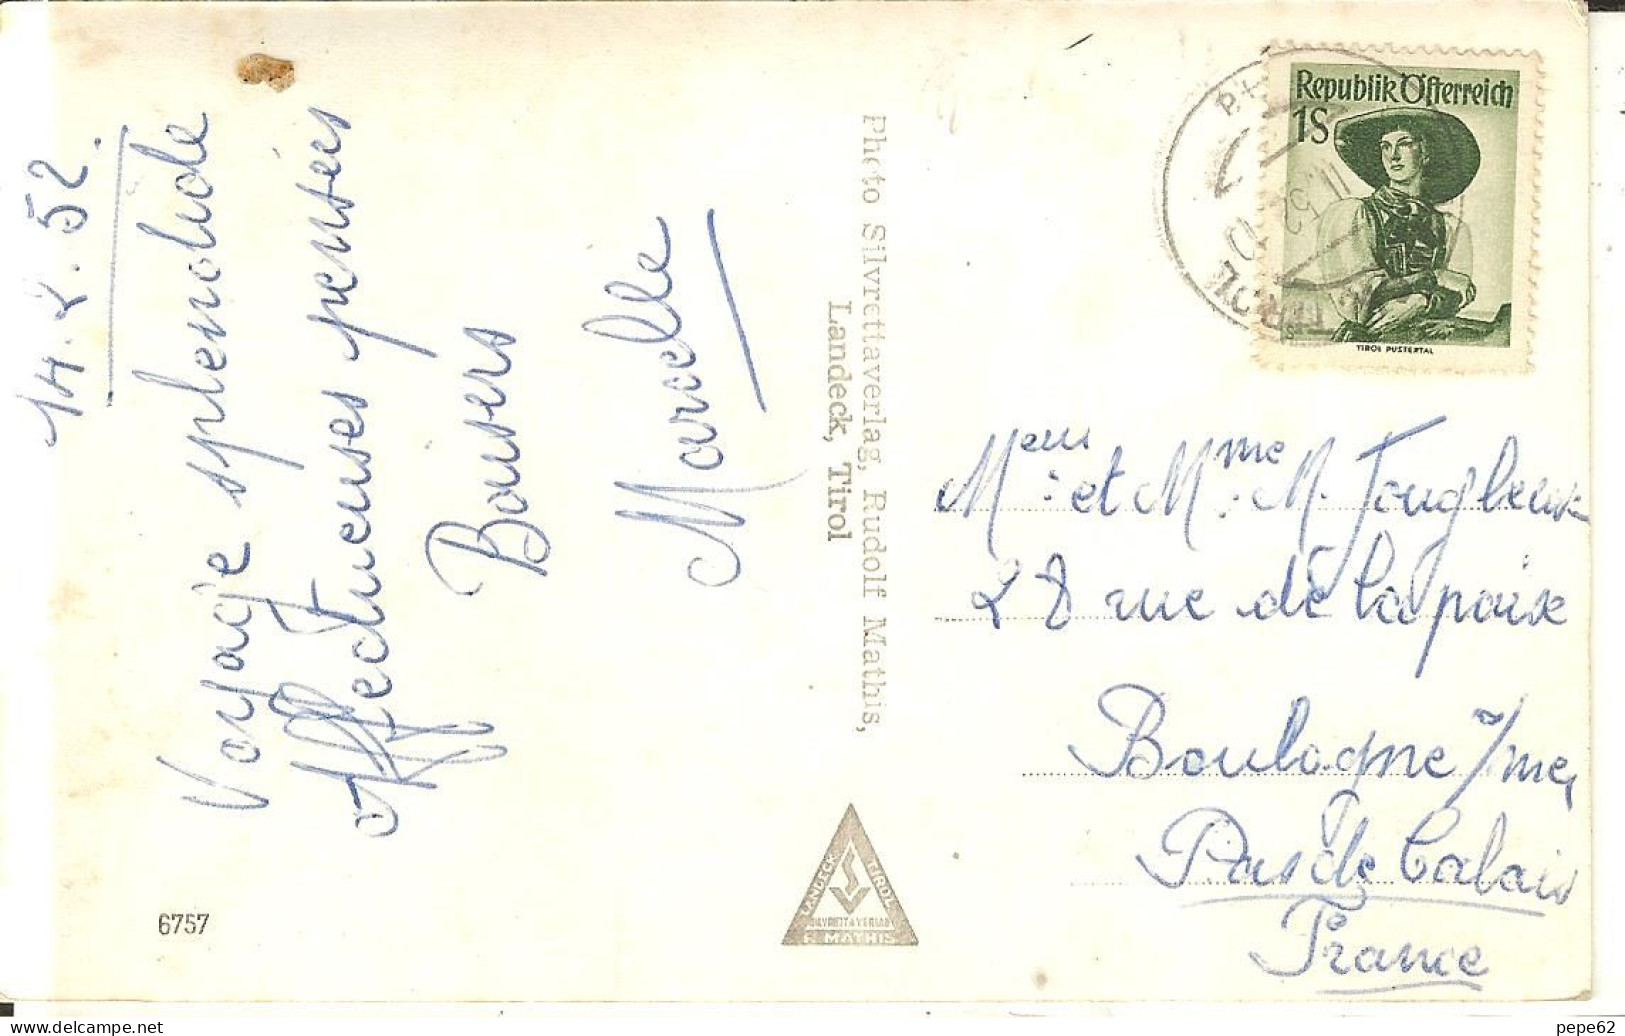 14.8.52.
Voyage splendide
Affectueuses pensées
Baisers
Marcelle
Photo Silvrettaverlag, Rudolf Mathis,
Landeck, Tirol
6757
LANDECK TIROL
SILVRETTAVERLAG
R. MATHIS
Republik Österreich
1S
TIROL PUSTERTAL
TIROL
52
Mr: et Mme: M.
28 rue de la paix
Boulogne s/mer
Pas de Calais
France
pepe62